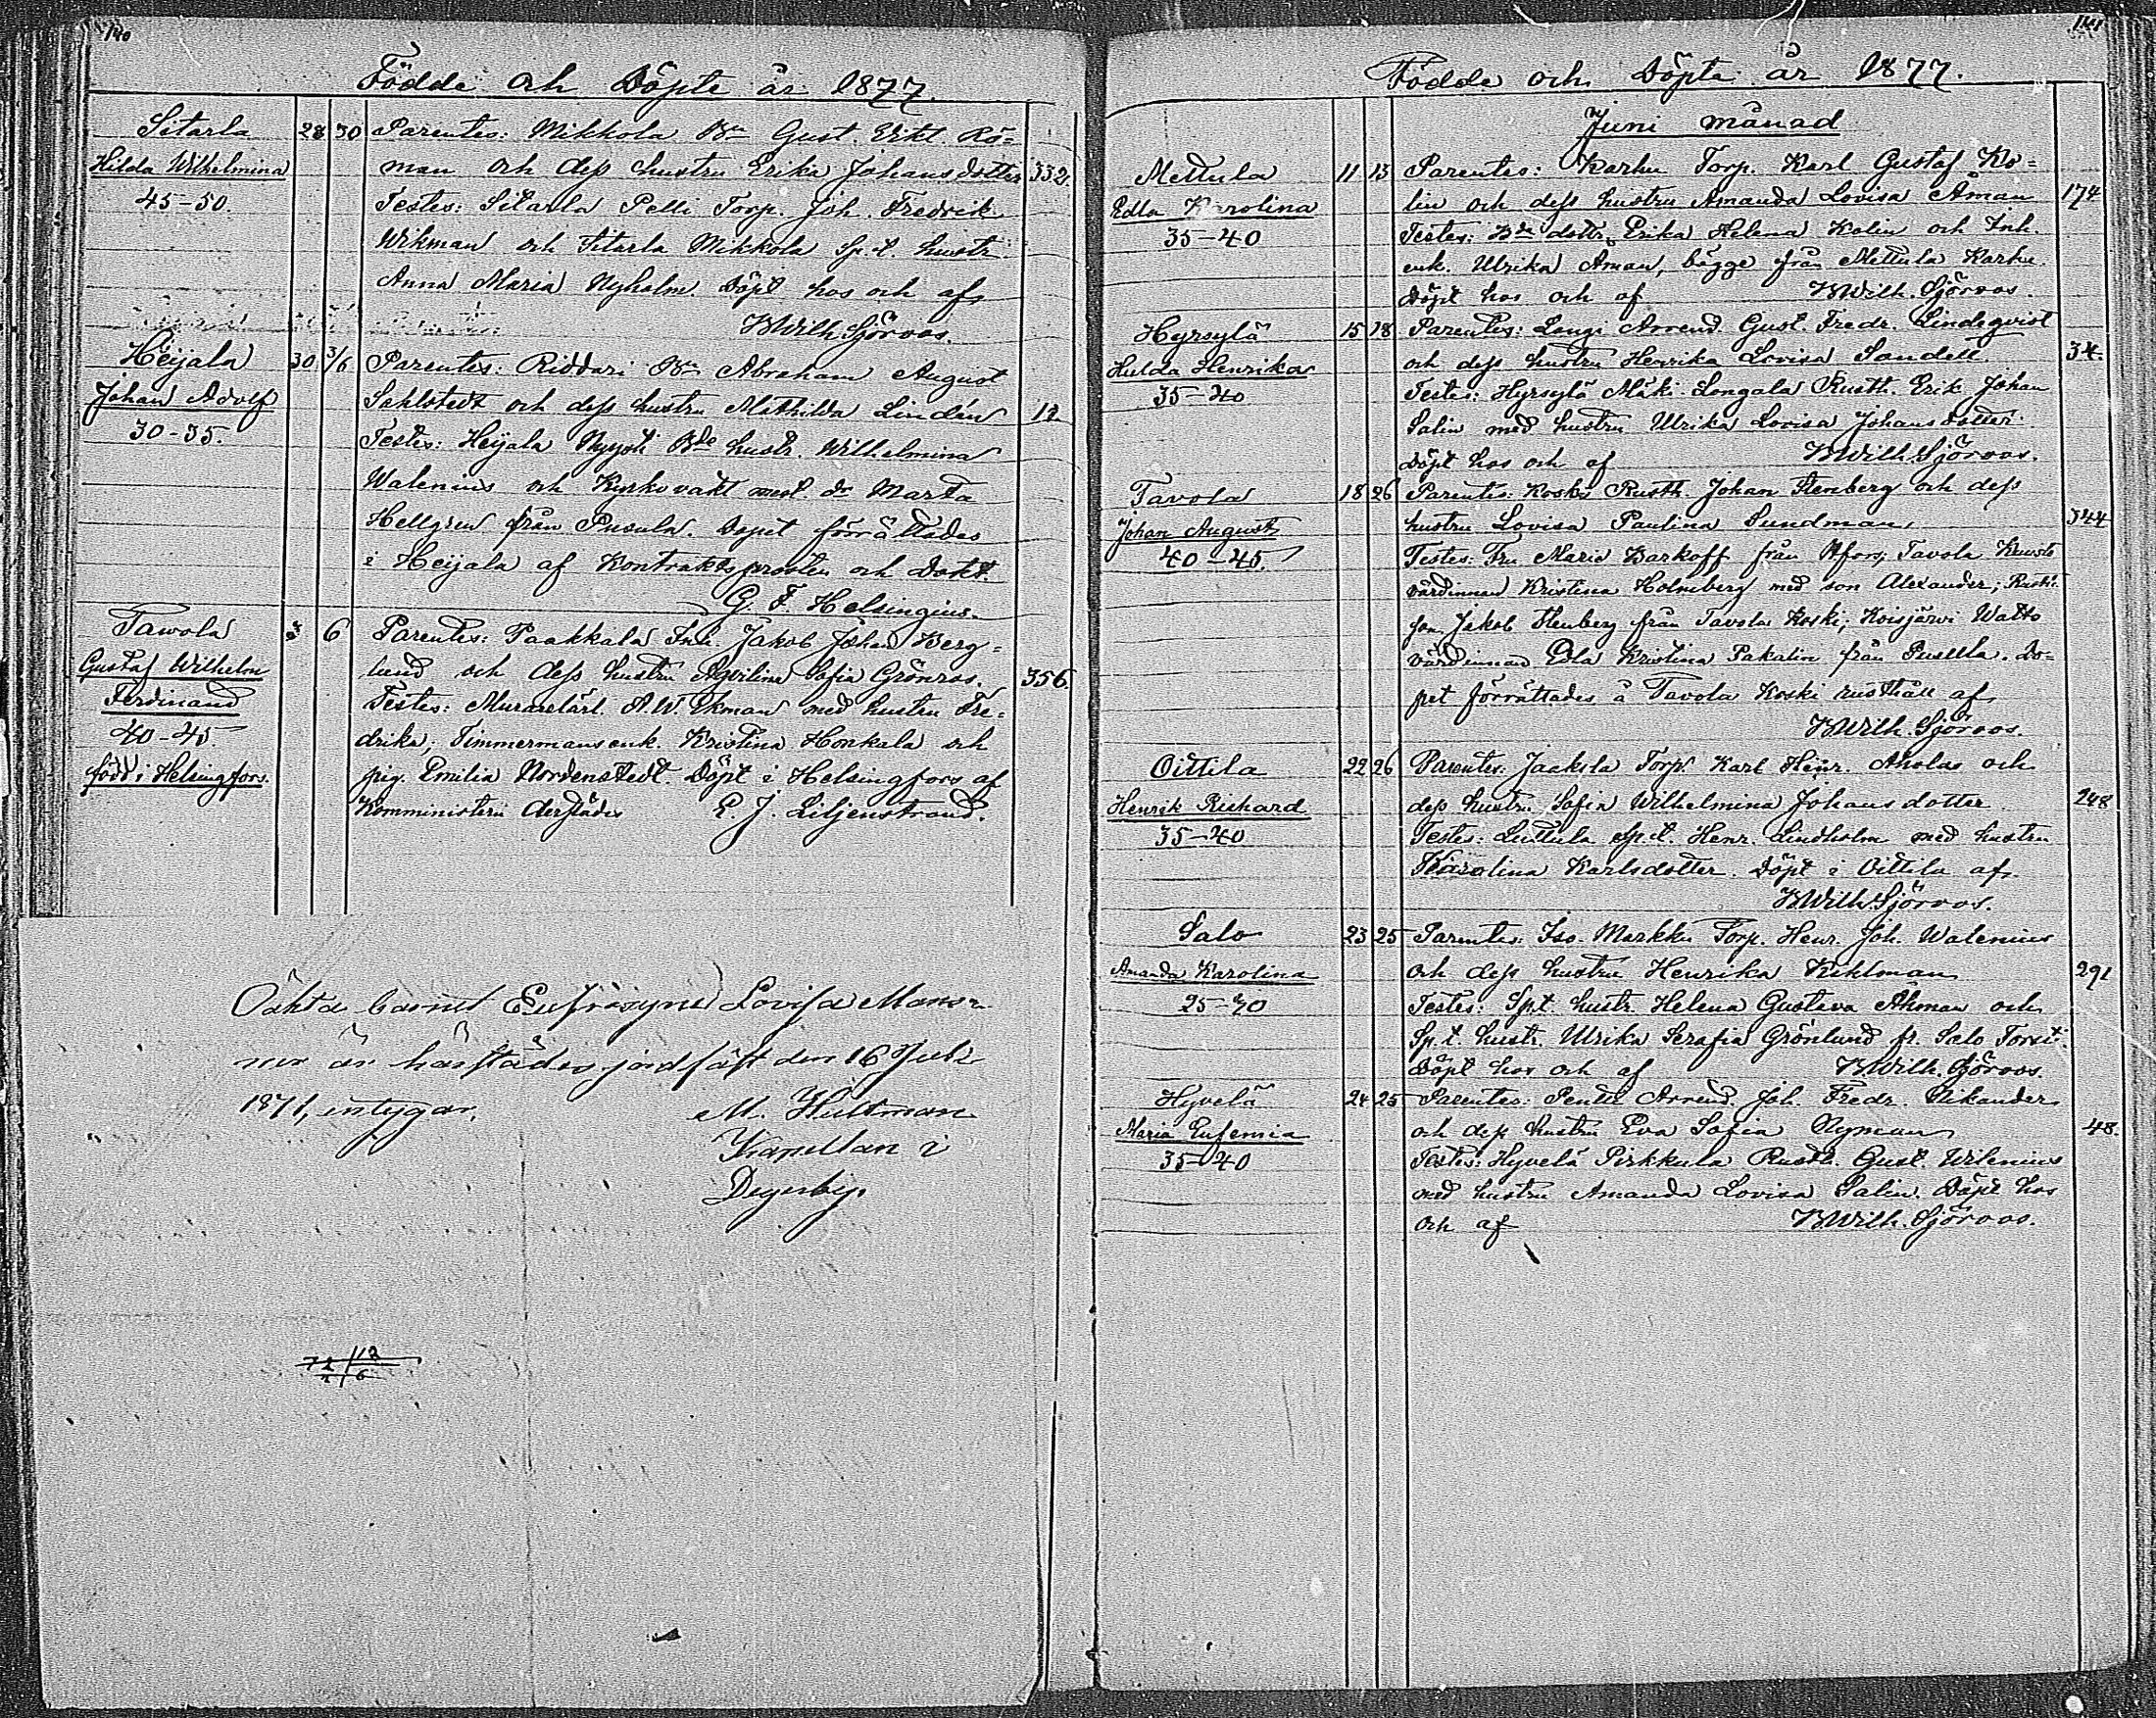 140
Födde och Döpte år 1877.
Sitarla 28 30 Parentes: Mikkola Bn Gust. Erikt. Rö=
Hilda Wilhelmina man och dess hustru Erika Johansdotter 332.
45-50. Testes: Sitarla Pelli Torp. Joh. Fredrik
Wikman och Sitarla Mikkola Sp.t. hustr.
Anna Maria Nyholm. Döpt hos och af
KWilh. Sjöroos.
Heijala 30 3/6 Parentes: Riddari Bn Abraham August
Johan Adolf Sahlstedt och dess hustru Mathilda Lindén 12
30-35. Testes: Heijala Nyysti Bde hustr. Wilhelmina
Walenius och Kyrkovakt Marta
Hellgren från Pusula. Dopet förrättades
i Heijala af Kontraktsprosten och Dokt.
G. F. Helsingius.
Tawola 3 6 Parentes: Paakkala Inh. Jakob Johan Berg=
Gustaf Wilhelm lund och dess hustru Aqvilina Sofia Grönroos. 356.
Ferdinand Testes: Muraretärl. A.W. Ekman med hustru Fre=
40-45. drika, Timmermansenk. Kristina Honkala och
född i Helsingfors. pig. Emilia Nordenstedt. Döpt i Helsingfors af
Komministern derstädes E. J. Liljenstrand.
Oäkta barnet Eufrosyne Lovisa Mans=
ner är härstädes jordfäst den 16 Juli
1871, intygar,
M. Hultman
Kapellan i
Degerby.
72/12
2/6
141
Födde och Döpte år 1877.
Juni månad
Mettula 11 13 Parentes: Karhu Torp. Karl Gustaf Ko=
Edla Karolina lin och dess hustru Amanda Lovisa Åman 174
35-40 Testes: Bde dottr. Erika Helena Kolin och Inh.
enk. Ulrika Åman, bägge från Mettula Karhu.
Döpt hos och af KWilh. Sjöroos.
Hyrsylä 15 18 Parentes: Longi Arrend. Gust. Fredr. Lindeqvist
Hulda Henrika och dess hustru Henrika Lovisa Sandell. 34.
35-40 Testes: Hyrsylä Mäki-Longala Rusth. Erik Johan
Salin med hustru Ulrika Lovisa Johansdotter.
Döpt hos och af KWilh. Sjöroos.
Tavola 18 26 Parentes: Koski Rusth. Johan Stenberg och dess
Johan August hustru Lovisa Paulina Sundman, 344
40-45. Testes: Fru Maria Barkoff från Hfors; Tavola
värdinnan Kristina Holmberg med son Alexander; Rusth.
son Jakob Stenberg från Tavola Koski; Koisjärvi Watto
värdinnan Edla Kristina Pakalin från Pusula. Do=
pet förrättades å Tavola Koski rusthåll af
KWilh. Sjöroos.
Oittila 22 26 Parentes: Jaakola Torp. Karl Henr. Aholas och
Henrik Richard dess hustru Sofia Wilhelmina Johansdotter 248
35-40 Testes: Luttula Sp.t. Henr. Lindholm med hustru
Karolina Karlsdotter. Döpt i Oittila af
KWilh. Sjöroos.
Salo 23 25 Parentes: Iso-Markku Torp. Henr. Joh. Walenius
Amanda Karolina och dess hustru Henrika Kihlman 291
25-30 Testes: Sp.t. hustr. Helena Gustava Åhman och
Sp.t. hustr. Ulrika Serafia Grönlund fr. Salo
Döpt hos och af KWilh. Sjöroos.
Hyvelä 24 25 Parentes: Pentti Arrend. Joh. Fredr. Nikander
Maria Eufemia och dess hustru Eva Sofia Nyman 48.
35-40 Testes: Hyvelä Pirkkula Rusth. Gust. Wilenius
med hustru Amanda Lovisa Salin. Döpt hos
och af KWilh. Sjöroos.